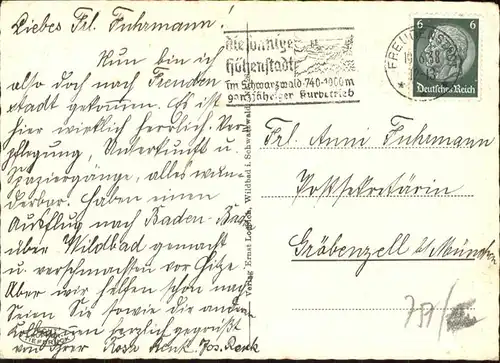 Liebes Frl. Fuhrmann!
Nun bin ich
also doch nach Freuden
stadt gekommen. Es ist
hier wirklich herrlich. Ver-
pflegung, Unterkunft u.
Spaziergänge, alles wun-
derbar. Haben einen
Ausflug nach Baden-Baden
über Wildbad gemacht
u. verschmachten vor Hitze.
Aber wir halten schon nach
Seien Sie sowie die andern
herzlich gegrüßt
von Ihrer Rosa Renk. Jos. Renk
die sonnige
Höhenstadt
Im Schwarzwald·740-1000m
ganzjähriger Kurbetrieb
FREUDENSTADT
6 6
Deutsches Reich
Verlag Ernst Wildbad i. Schwarzwald
Frl. Anni Fuhrmann
Postsekretärin
Gröbenzell b/München